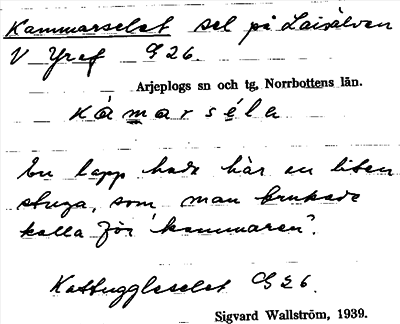 Kammarselet sel på Laisälven
V Yref G 26.
Arjeplogs sn och tg, Norrbottens län.
kàmarséla
En lapp hade här en liten
stuga, som man brukade
kalla för "kammaren".
Kattuggleselet G 26.
Sigvard Wallström, 1939.